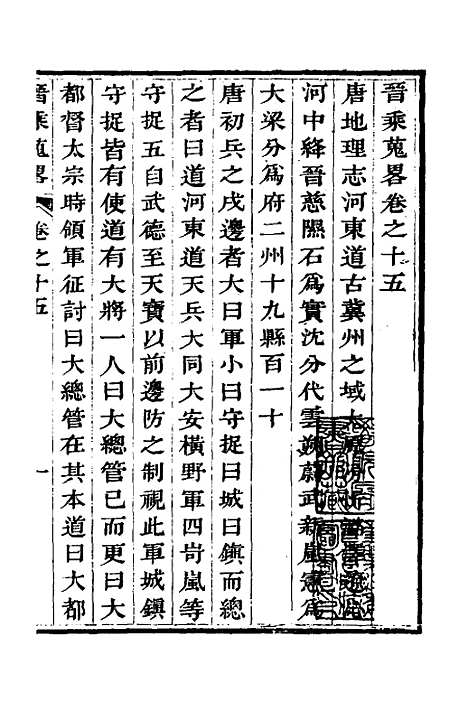 晉乘蒐畧卷之十五
唐地理志河東道古冀州之域太原
河中絳晉慈隰石爲實沈分代雲朔蔚武新嵐憲爲
大梁分爲府二州十九縣百一十
唐初兵之戍邊者大曰軍小曰守捉曰城曰鎭而總
之者曰道河東道天兵大同大安橫野軍四岢嵐等
守捉五自武德至天寶以前邊防之制視此軍城鎭
守捉皆有使道有大將一人曰大總管已而更曰大
都督太宗時領軍征討曰大總管在其本道曰大都
晉乘蒐畧
卷之十五
一